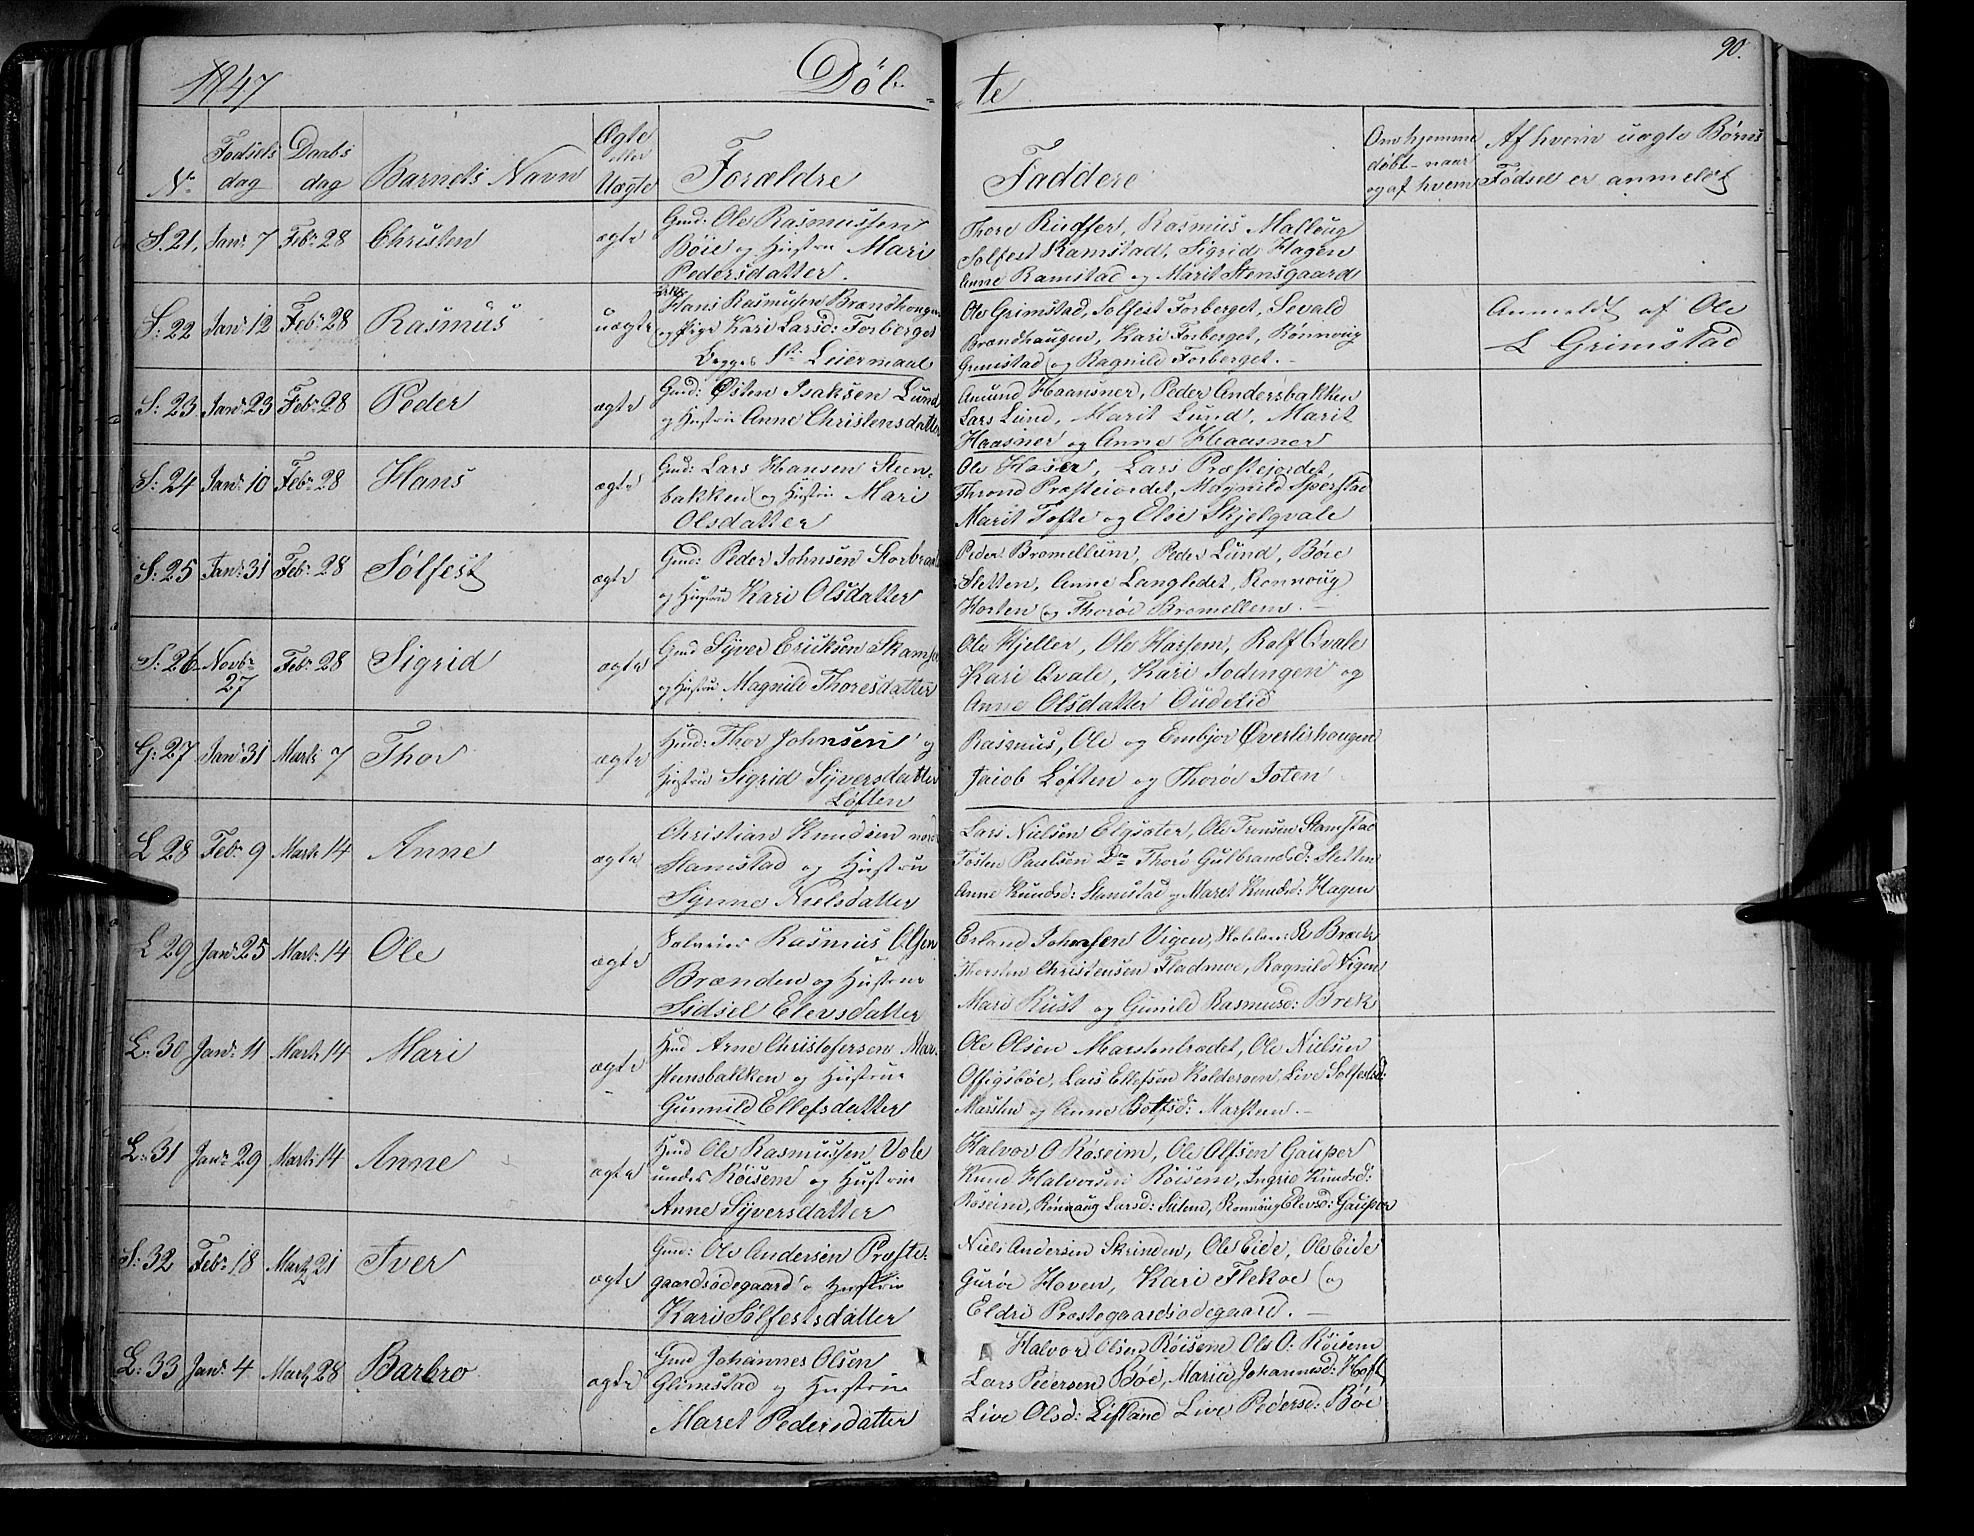 1847 Døb-
-te
90.
No
Fødsels
dag
Daabs
dag
Barnets Navn
Ægte
eller
Uægte
Forældre
Faddere
Om hjemme
døbt naar
og af hvem
Af hvem uægte Børns
Fødsel er anmeldt
S. 21, Janr 7 Febr 28 Christen ægte
Gmd: Ole Rasmussen
Bøie og Hustru Mari
Pedersdatter.
Thore Rudsert, Rasmus
Solfest Ramstad, Sigrid Hagen
Anne Ramstad og Marit Stensgaard
S: 22 Janr 12 Febr 28 Rasmus uægte
Hans Rasmusen Brændhougen
og Pige Kari Larsd: Forberget
Begges Leiermaal
Ole Grimstad, Solfest Forberget, Sevald
Brændhaugen, Kari Forberget, Rønnoug
Grimstad og Ragnild Forberget.
Anmeldt af Ole
L Grimstad
S: 23 Janr 23 Febr 28 Peder ægte
Gmd: Østen Isaksen Lund
og Hustru Anne Christensdatter
Amund Haansner, Peder Andersbakken
Lars Lund, Marit Lund, Marit
Haasner og Anne Haasner
S: 24 Janr 10 Febr 28 Hans ægte
Gmd: Lars Hansen Steen-
bakken og Hustru Mari
Olsdatter
Ole Hoser, Lars Præstejordet,
Thrond Præsteiordet, Magnild Sperstad
Marit Tofte og Else Skjelqvale
S: 25 Janr 31 Febr 28 Sølfest ægte
Gmd: Peder Johnsen
og Hustru Kari Olsdatter
Peder Bromellum, Peder Lund, Bøie
Stetten, Anne Langledet, Ronnoug
Horten og Thorøe Bromellem.
S: 26 Novbr
27 Febr 28 Sigrid ægte
Gmd Syver Ericksen
og Hustru Magnild Thoresdatter
Ole Kjeller, Ole Harsem, Rolf Qvale
Kari Qvale, Kari Jodingen og
Anne Olsdatter
G: 27 Janr 31 Marts 7 Thor ægte
Hmd: Thor Johnsen og
Hustru Sigrid Syversdatter
Løften
Rasmus, Ole og Embjør Øverlishougen
Jacob Løften og Thorøe Joten
L 28 Febr 9 Marts 14 Anne ægte
Christian Knudsen nordr
Stamstad og Hustru
Synne Nielsdatter
Lars Nielsen Elgsæter, Ole Trensen Stamstad
Tosten Paulsen Do Thorø Gulbrandsd: Stetten
Anne Knudsd: Stamstad og Maret Knudsd: Hagen
L 29 Janr 25 Marts 14 Ole ægte
Rasmus Olsen
Brænden og Hustrue
Sidsel Elevsdatter
Erland Johnsen Vigen,
Thorsten Christensen Fladmoe, Ragnild Vigen
Mari Kust og Gunild Rasmusd: Brek
L: 30 Janr 11 Marts 14 Mari ægte
Hmd Arne Christofersen Mar-
stensbakken og Hustrue
Gunnild Ellefsdatter
Ole Olsen Marstentrædet, Ole Nielsen
Offigsbøe, Lars Ellefsen Kolderoen, Live Solfestsd:
Marsten og Anne Botfsd: Marsten.
L: 31 Janr 29 Marts 14 Anne ægte
Hmd Ole Rasmussen Vole
under Røisem og Hustrue
Anne Syversdatter
Halvor O Røseim, Ole Olfsen Gausper
Knud Halvorsen Røisem, Ingrie Knudsd:
Roseim, Rønnaug Larsd: Sulem, Ronnoug Elevsd: Gausper
S: 32 Febr 18 Marts 21 Iver ægte
Gmd: Ole Andersen Præste-
gaardsødegaard og Hustrue
Kari Sølfestsdatter
Niels Andersen Skrinden, Ole Eide, Ole Eide
Gurøe Hoven, Kari Flekøe og
Eldri Præstegaardsødegaard.
L: 33 Janr 4 Marts 28 Barbro ægte
Gmd Johannes Olsen
Glimstad og Hustrue
Maret Pedersdatter
Halvord Olsen Røisem Ole O: Røisem
Lars Pedersen Bøe, Marie Johannesd: Hoft
Live Olsd: Lifland Live Pedersd: Bøe